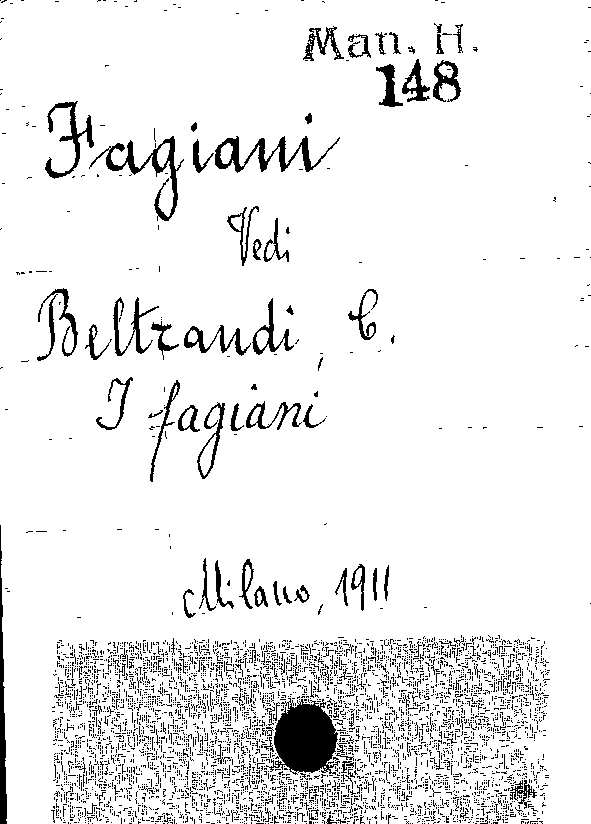 Man. H.
148
Fagiani
Vedi
Beltrandi, C.
I fagiani
Milano, 1911